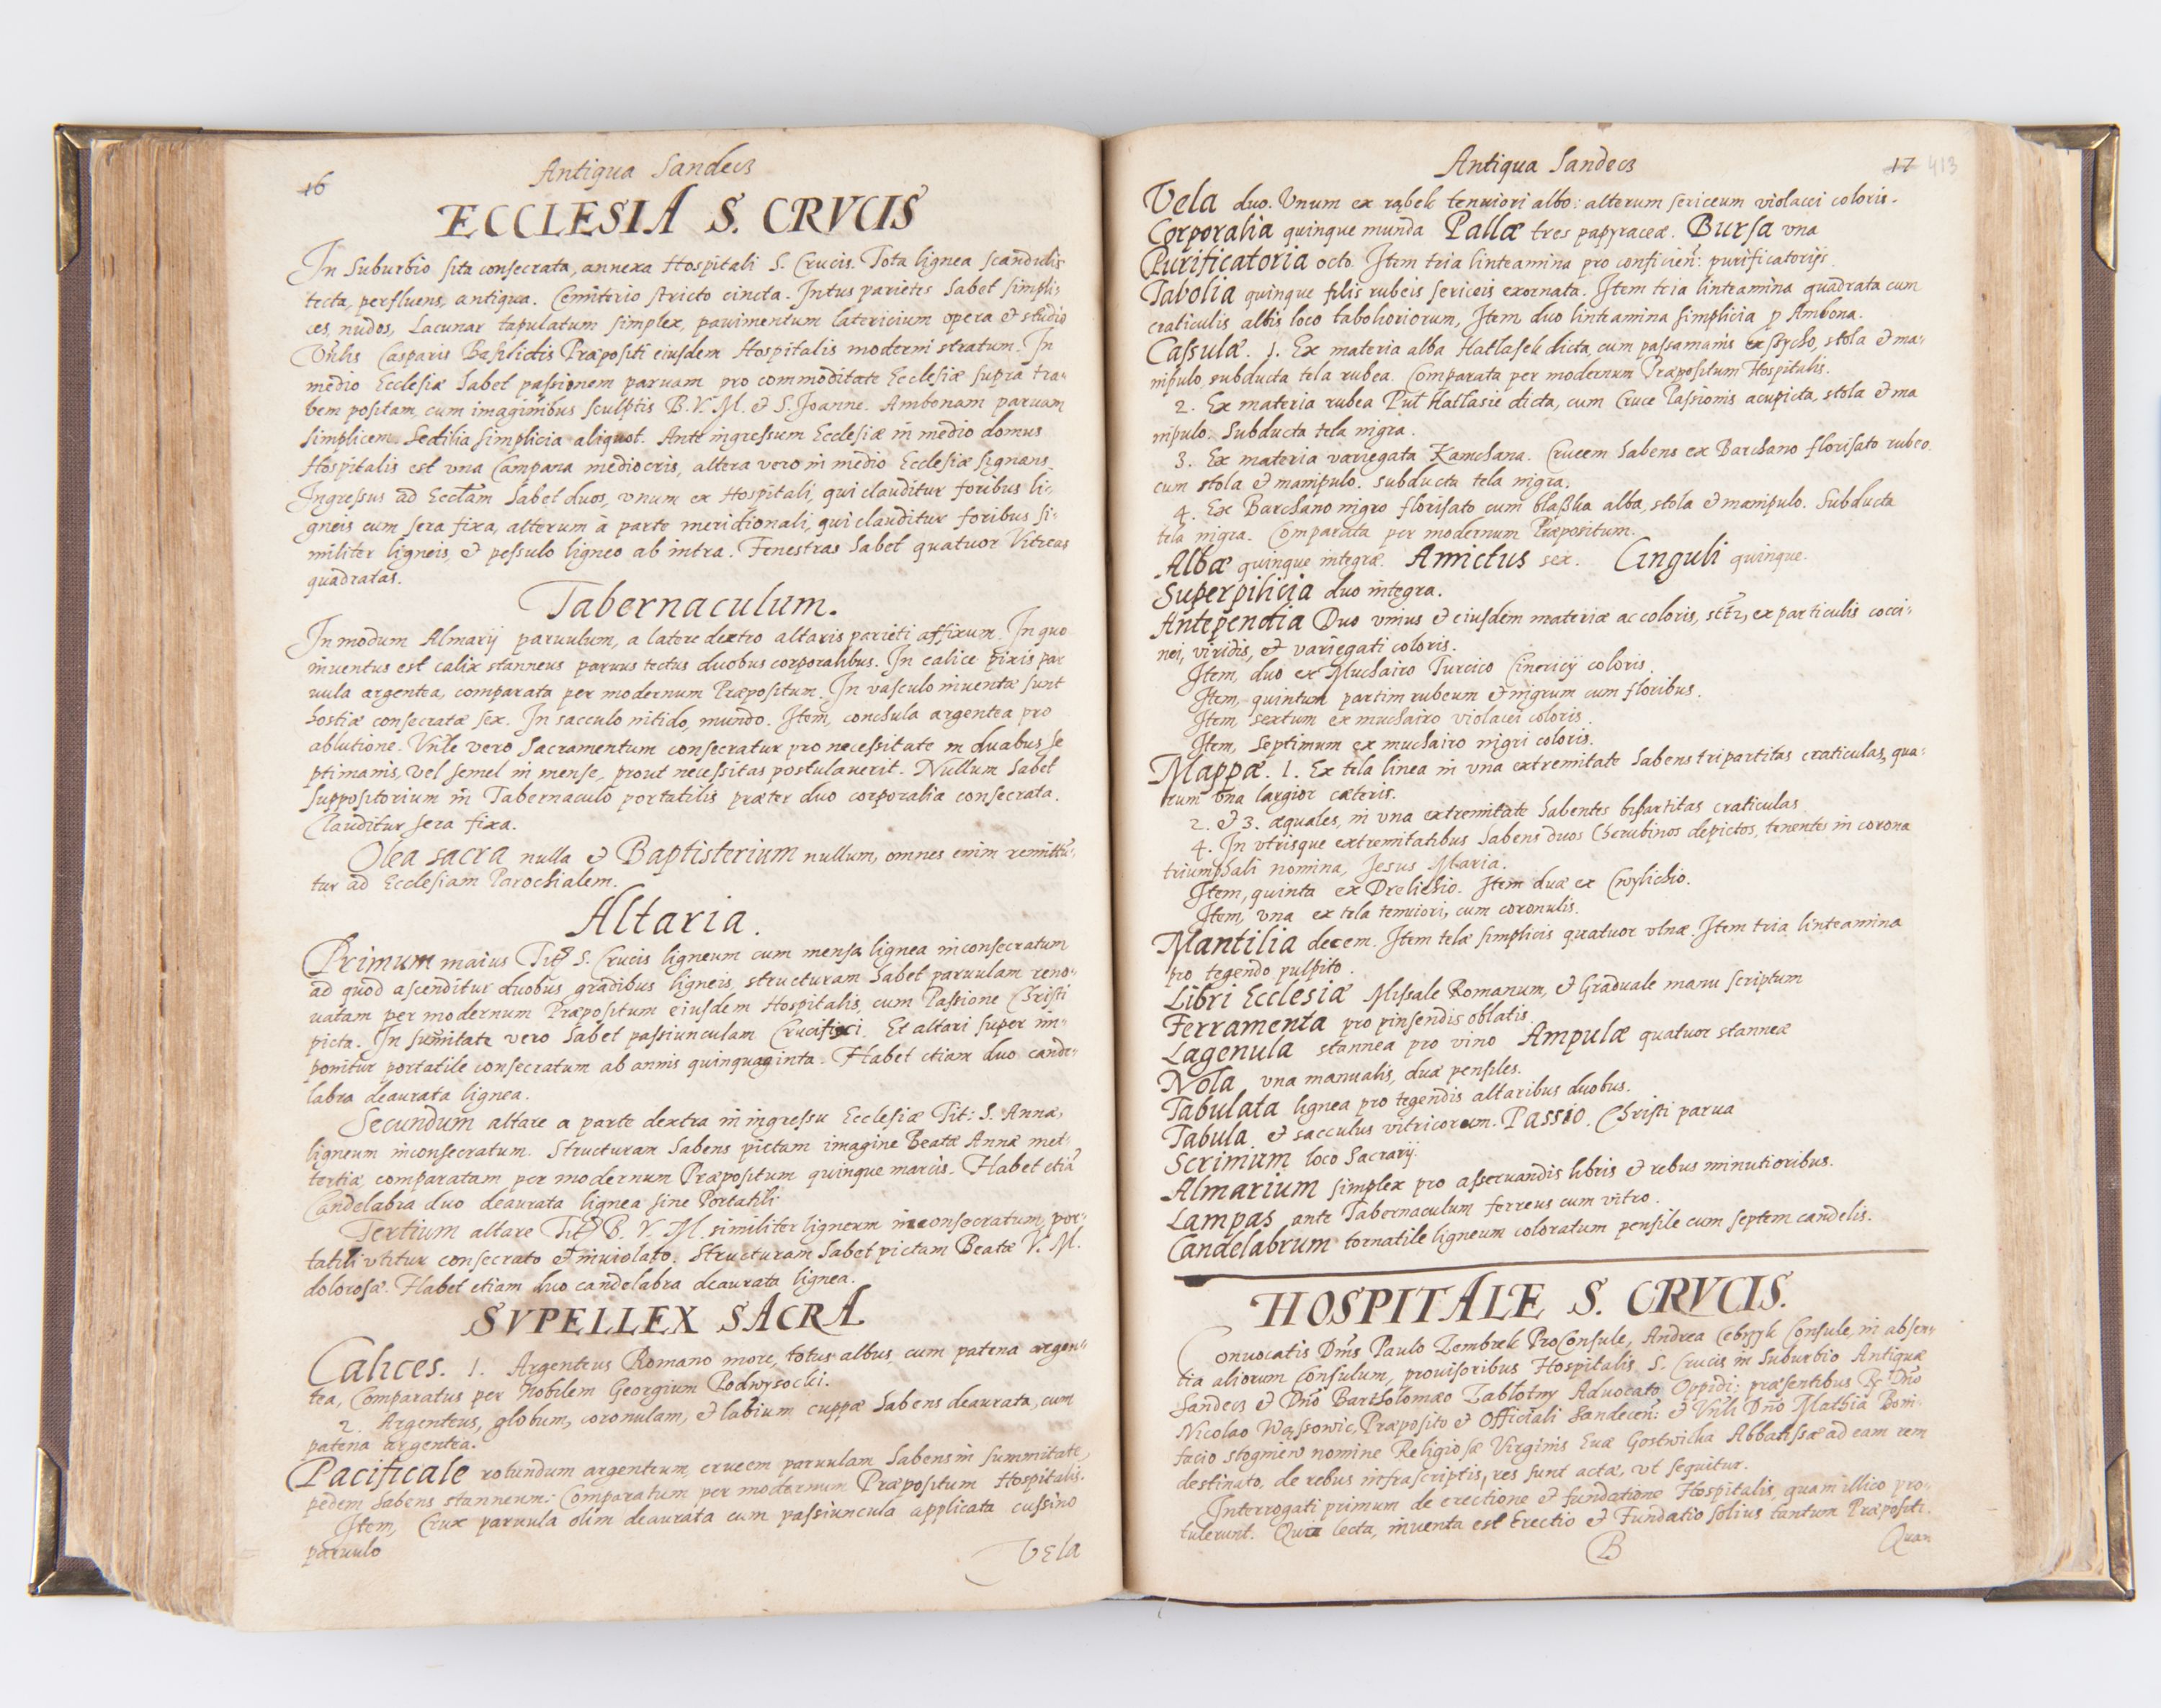 16
Antiqua Sandecz
ECCLESIA S. CRVCIS
In Suburbio sita consecrata, annexa Hospitali S. Crucis. Tota lignea scandulis
tecta, perfluens, antiqua. Cemiterio stricto cincta. Intus parietes habet simpli-
ces, nudos, Lacunar tapulatum simplex, pauimentum latericium opera & studio
Vnlis Casparis Basilidis Præpositi eiusdem Hospitalis moderni stratum. In
medio Ecclesiæ habet passionem paruam pro commoditate Ecclesiæ supra tra-
bem positam, cum imaginibus sculptis B. V. M. & S. Joanne. Ambonam paruam
simplicem. Sedilia simplicia aliquot. Ante ingressum Ecclesiæ in medio domus
Hospitalis est vna Campana mediocris, altera vero in medio Ecclesiæ signans.
Ingressus ad Eccłam habet duos, vnum ex Hospitali, qui clauditur foribus li-
gneis cum sera fixa, alterum à parte meridionali, qui clauditur foribus si-
militer ligneis, & pessulo ligneo ab intra. Fenestras habet quatuor Vitreas
quadratas.
Tabernaculum.
In modum Almarij paruulum, a latere dextro altaris parieti affixum. In quo
inuentus est calix stanneus paruus tectus duobus corporalibus. In calice pixis par
uula argentea, comparata per modernum Præpositum. In vasculo inuentæ sunt
hostiæ consecratæ sex. In sacculo nitido, mundo. Item, conchula argentea pro
ablutione. Vnłe vero Sacramentum consecratur pro necessitate in duabus se
ptimanis, vel semel in mense, prout necessitas postulauerit. Nullum habet
suppositorium in Tabernaculo portatilis præter duo corporalia consecrata.
Clauditur sera fixa.
Olea sacra nulla & Baptisterium nullum, omnes enim remittū-
tur ad Ecclesiam Parochialem.
Altaria.
Primum maius Tit: S. Crucis ligneum cum mensa lignea inconsecratum
ad quod ascenditur duobus gradibus ligneis, structuram habet paruulam reno-
uatam per modernum Præpositum eiusdem Hospitalis, cum Passione Christi
picta. In sumitate vero habet passiunculam Crucifixi. Et altari super im-
ponitur portatile consecratum ab annis quinquaginta. Habet etiam duo cande-
labra deaurata lignea.
Secundum altare a parte dextra in ingressu Ecclesiæ Tit: S. Annæ,
ligneum inconsecratum. Structuram habens pictam imagine Beatæ Annæ met-
tertiæ, comparatam per modernum Præpositum quinque marcis. Habet etiã
Candelabra duo deaurata lignea sine Portatili
Tertium altare Tit: B. V. M. similiter ligneum inconsecratum, por-
tatili vtitur consecrato & inuiolato. Structuram habet pictam Beatæ V. M.
dolorosæ. Habet etiam duo candelabra deaurata lignea.
SVPELLEX SACRA
Calices. 1. Argenteus Romano more, totus albus, cum patena argen-
tea, Comparatus per Nobilem Georgium Podwysocki.
2. Argenteus, globum, coronulam, & labium cuppæ habens deaurata, cum
patena argentea.
Pacificale rotundum argenteum, crucem paruulam habens in summitate,
pedem habens stanneum: Comparatum per modernum Præpositum Hospitalis.
Item, Crux paruula olim deaurata cum passiuncula applicata cussino
paruulo
Vela
Antiqua Sandecz
17 413
Vela duo. Vnum ex rąbek tenuiori albo: alterum sericeum violacei coloris.
Corporalia quinque munda Pallæ tres papyraceæ. Bursa vna
Purificatoria octo. Item tria linteamina pro conficien: purificatorijs.
Tabolia quinque filis rubeis sericeis exornata. Item tria linteamina quadrata cum
craticulis albis loco taboliorum, Item duo linteamina simplicia p Ambona.
Casulæ. 1. Ex materia alba Hatlasek dicta, cum passamanis ex Szycho, stola & ma-
nipulo, subducta tela rubea. Comparata per modernum Præpositum Hospitalis.
2. Ex materia rubea Puł Hatlasie dicta, cum Cruce Passionis acupicta, stola & ma
nipulo. Subducta tela nigra.
3. Ex materia variegata Kamchana. Crucem habens ex Barchano florisato rubeo
cum stola & manipulo. subducta tela nigra.
4. Ex Barchano nigro florisato cum blaszka alba, stola & manipulo. Subducta
tela nigra. Comparata per modernum Præpositum.
Albæ quinque integræ. Amictus sex. Cinguli quinque.
Superpilicia duo integra.
Antependia Duo vnius & eiusdem materiæ ac coloris, sctz, ex particulis cocci-
nei, viridis, & variegati coloris.
Item, duo ex Muchairo Turcico Cinericij coloris.
Item, quintum partim rubeum & nigrum cum floribus.
Item, sextum ex muchairo violacei coloris.
Item, septimum ex muchairo nigri coloris.
Mappæ. 1. Ex tela linea in vna extremitate habens tripartitas craticulas, qua-
rum vna largior cæteris.
2. & 3. æquales, in vna extremitate habentes bipartitas craticulas
4. In vtrisque extremitatibus habens duos Cherubinos depictos, tenentes in corona
triumphali nomina, Jesus Maria.
Item, quinta ex Drelichio. Item duæ ex Cwylichio.
Item, vna ex tela tenuiori, cum coronulis.
Mantilia decem. Item telæ simplicis quatuor vlnæ. Item tria linteamina
pro tegendo pulpito.
Libri Ecclesiæ Missale Romanum, & Graduale manu scriptum
Ferramenta pro pinsendis oblatis.
Lagenula stannea pro vino Ampulæ quatuor stanneæ
Nola vna manualis, duæ pensiles.
Tabulata lignea pro tegendis altaribus duobus.
Tabula & sacculus vitricorum. Passio Christi parua
Scrinium loco Sacrarij.
Almarium simplex pro asseruandis libris & rebus minutioribus.
Lampas ante Tabernaculum ferreus cum vitro.
Candelabrum tornatile ligneum coloratum pensile cum septem candelis.
HOSPITALE S. CRVCIS.
Conuocatis Dnis Paulo Zembrek ProConsule, Andrea Consule, in absen-
tia aliorum Consulum, prouisoribus Hospitalis S. Crucis in Suburbio Antiquæ
Sandecz & Dno Bartholomæo Zabłotny Aduocato Oppidi: præsentibus R. Dno
Nicolao Præposito & Officiali Sandecen: & Vnli Dno Mathia Boni-
facio stogniew nomine Religiosæ Virginis Euæ Gostwicka Abbatissæ ad eam rem
destinato, de rebus infrascriptis, res sunt actæ, vt sequitur.
Interrogati primum de erectione & fundatione Hospitalis, quam illico pro-
tulerunt. Qua lecta, inuenta est Erectio & Fundatio solius tantum Præpositi.
B
Quan